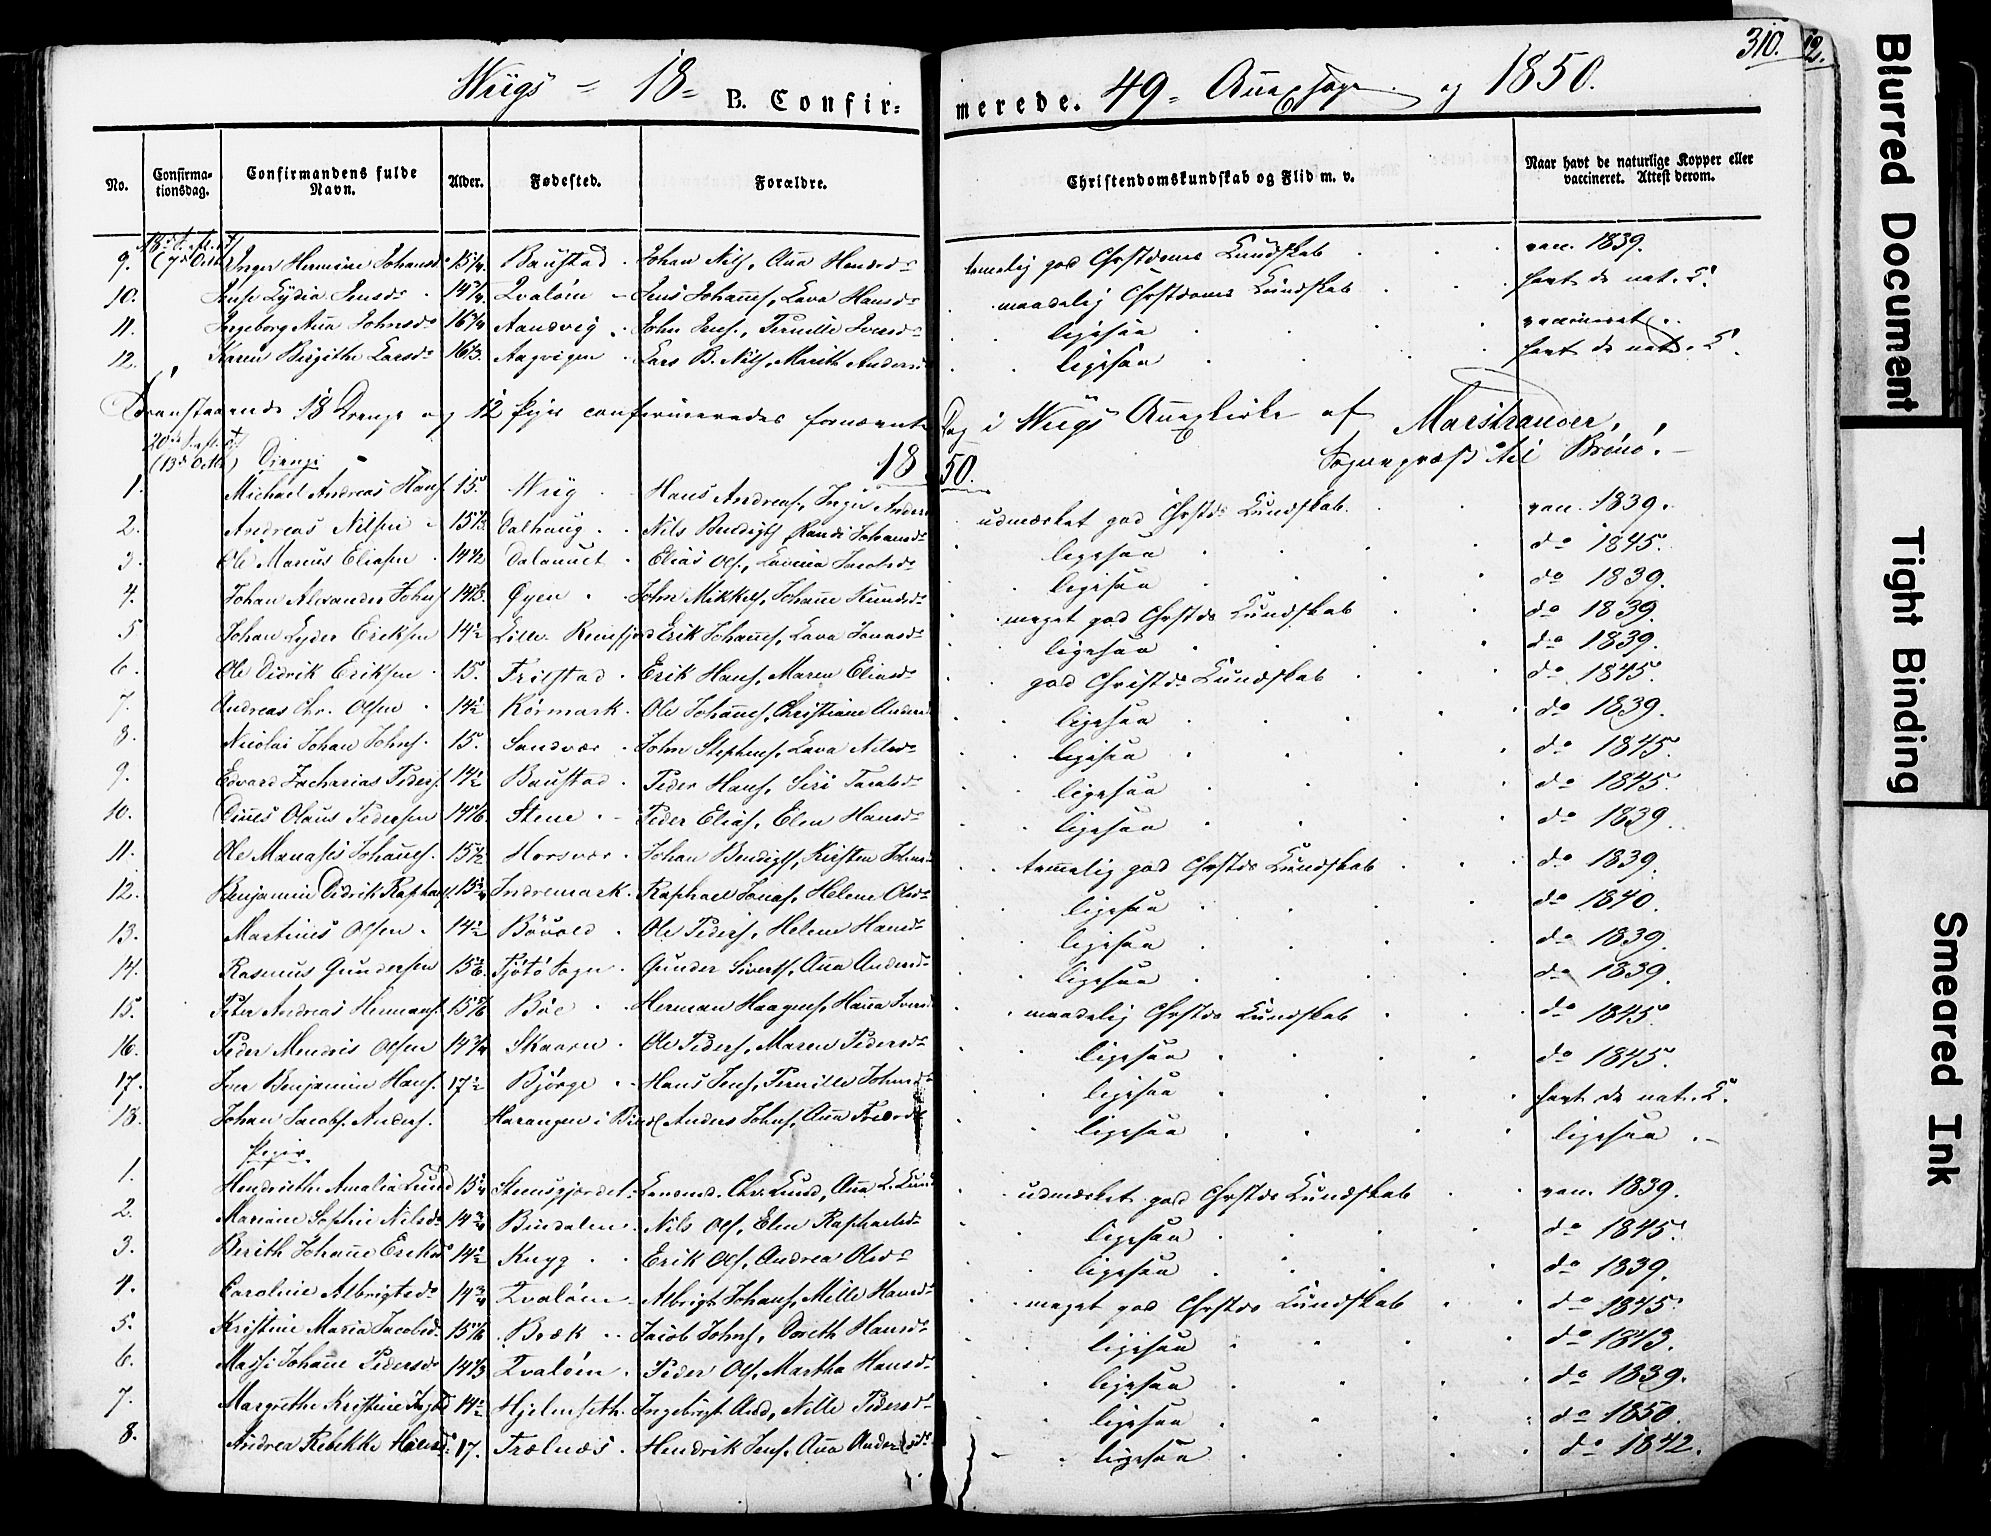 Wiigs = 18= B. Confir: merede. 49= Annexsogn og 1850. 310.
No. Confirma-tionsdag. Confirmandens fulde Navn. Alder. Fødested. Forældre. Christendomskundskab og Flid m. v. Naar havt de naturlige Kopper eller vaccineret. Attest derom.
9. Inger Hermine Johansd. 15 1/4 Baustad Johan Nils., Aña Hansd. temelig god Chrstdoms Kundskab vac. 1839.
10. Lydia Jensd. Qvaløen Jens Johans., Lava Hansd. maadelig Chrstdoms Kundskab havt de nat. K.
11. Ingeborg Aña Johnsd. Aandvig John Jens., Pernille Iversd. ligesaa vaccineret
12. Karen Birgithe Larsd. Aagvigen Lars B. Nils., Marith Andersd. ligesaa havt de nat. K.
Foranstaaende 18 Drenge og 12 Piger confirmeredes fornævnte Dag i Wiigs Añexkirke af Marstrander,
Sognepræst til Brønø.
(13de Octb.) Drenge 1850.
1. Michael Andreas Hans. 15. Wiig Hans Andreas., Inger Anders udmærket god Chrstds Kundskab vac. 1839.
2. Andreas Nilsen 15 1/3 Dalhaug Nils Bendigts. Randi Johansd. ligesaa do 1845.
3. Ole Marius Eliasen 14 1/2 Elias Ols., Lavina Jacobsd. ligesaa do 1839.
4. Johan Alexander Johns. Øyen John Mikkels., Johañe Knudsd. meget god Chrstds Kundskab do 1839.
5 Johan Lyder Eriksen 14 1/2 Lille Reinfjord Erik Johañes., Lava Jonasd. ligesaa do 1839.
6. Ole Didrik Eriksen 15. Trilstad Erik Hans., Maren Eliasd. god Christds Kundskab do 1845.
7. Andreas Chr. Olsen 14 1/2 Körmark Ole Johañes., Christiane Anders ligesaa do 1839.
8. Nicolai Johan Johns. 15. Sandvær John Stephens., Lava Nilsd. ligesaa do 1845.
9. Edvard Zacharias Peders. 14 1/2 Baustad Peder Hans., Siri Taralsd. ligesaa do 1845.
10. Dines Olaus Pedersen Steue Peder Elias., Elen Hansd. ligesaa do 1839.
11. Ole Manases Johañes. 15 1/2 Horsvær Johan Bendigts., Kirsten Johns temmelig god Chrstds Kundskab do 1839.
12. Benjamin Didrik Raphaels. Indremark Raphael Jonas., Helene Olsd. ligesaa do 1840.
13. Martines Olsen 14 1/2 Bövold Ole Peders., Helene Hansd. ligesaa do 1839.
14. Rasmus Gundersen Tjötö Sogn Gunder Siverts., Aña Andersd. ligesaa do 1839.
15. Peter Andreas Hermans. Böe Herman Haagens., Haña Ivers maadelig Chrstds Kundskab do 1845.
16. Peder Mendris Olsen 14 3/4 Skaaren Ole Peders., Maren Pedersd. ligesaa do 1845.
17. Iver Benjamin Hans. 17 1/2 Björge Hans Jens., Pernille Johnsd. ligesaa havt de nat. K.
18. Johan Jacob. Anders. Harangen i Bind. Anders Johns., Aña ligesaa ligesaa
Piger.
1. Hendriethe Amalia Lund Steensgjordet Chr. Lund, Aña L. Lund udmærket god Chrstds Kundskab vac. 1839.
2. Mariane Sophie Nilsd. 14 3/4 Bindalen Nils Ols., Elen Raphaelsd. ligesaa do 1845.
3. Berith Johañe Eriksd. 14 1/2 Kryg Erik Ols., Andrea Olsd. ligesaa do 1839.
4. Caroline Albrigtsd. 14 3/4 Qvaløen Albrigt Johans., Mille Hansd. meget god Chrstds Kundskab do 1845.
5. Kristine Maria Jacobsd. Bræk Jacob Johns., Doreth Hansd. ligesaa do 1843.
6. Massi Johañe Pedersd. 14 1/3 Qvaløen Peder Ols., Martha Hansd. ligesaa do 1839.
7. Margrethe Kristine 14 1/2 Hjelmseth Ingebrigt And., Nille Pedersd. ligesaa do 1850.
8. Andrea Rebekke 17. Trælnæs Hendrik Jens., Aña Andersd. ligesaa do 1842.
Blurred Document
Tight Binding
Smeared Ink